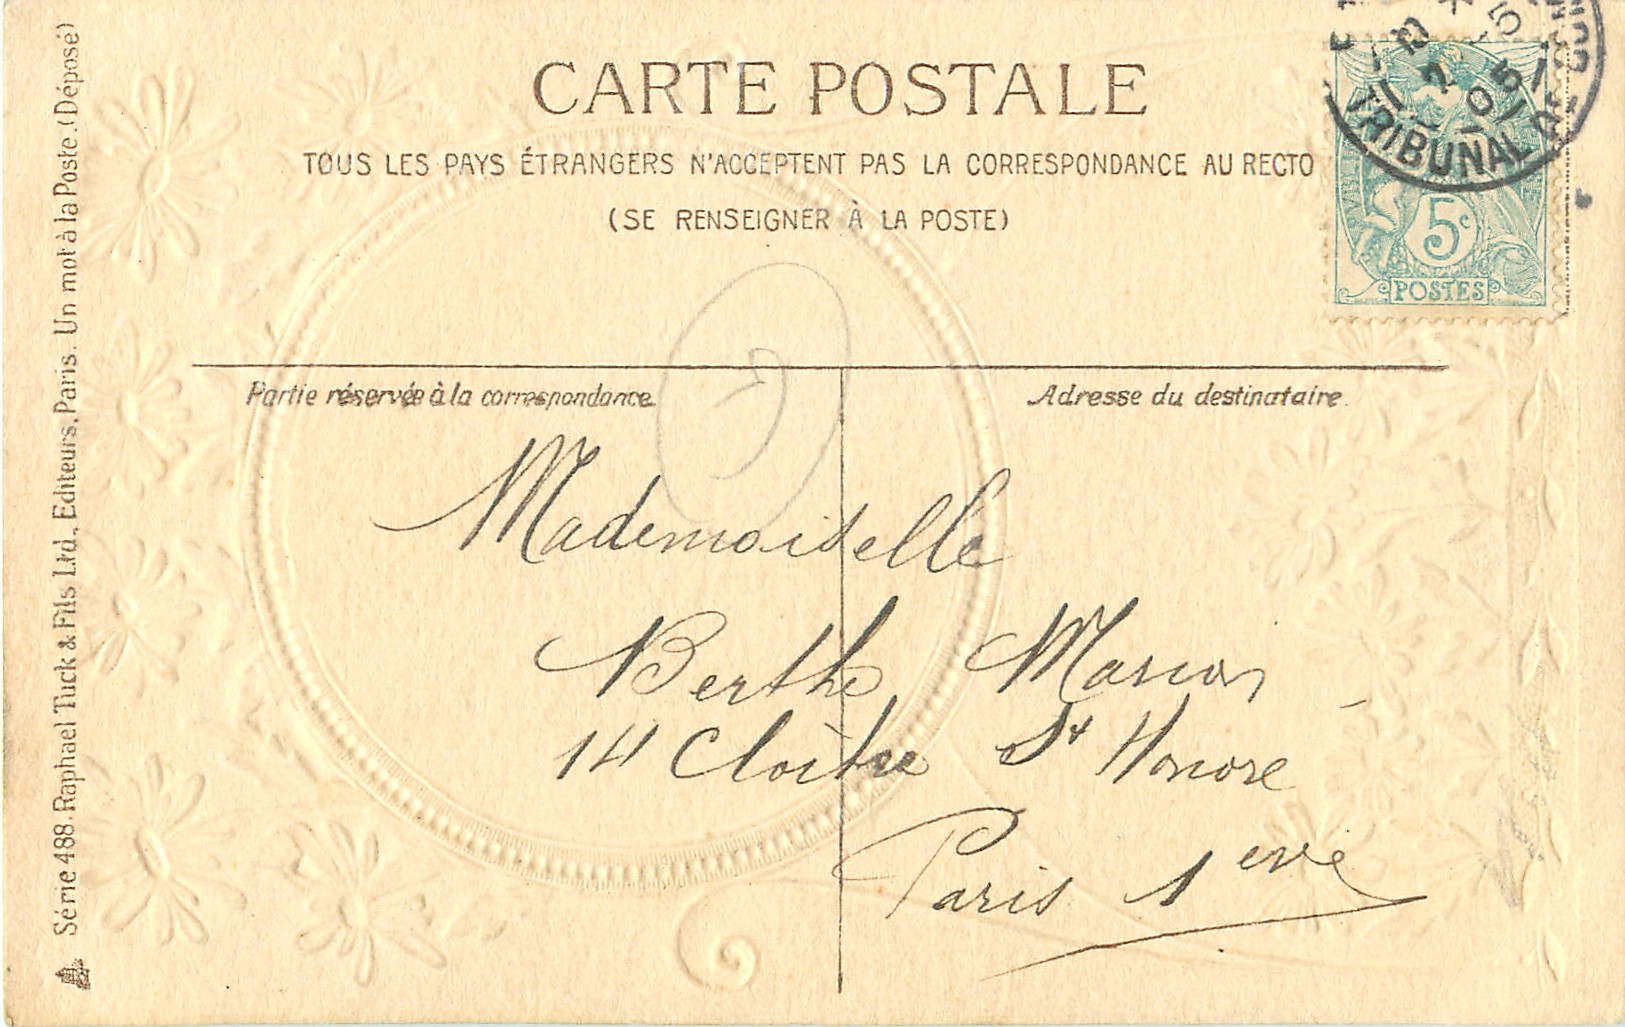 CARTE POSTALE
TOUS LES PAYS ÉTRANGERS N'ACCEPTENT PAS LA CORRESPONDANCE AU RECTO
(SE RENSEIGNER À LA POSTE)
Partie réservée à la correspondance
Adresse du destinataire
Mademoiselle
Berthe Marion
14 Cloître St Honoré
Paris 1erve
5c
POSTES
TRIBUNAL DE COM
Série 488. Raphael Tuck & Fils Ltd., Editeurs, Paris. Un mot à la Poste. (Déposé)